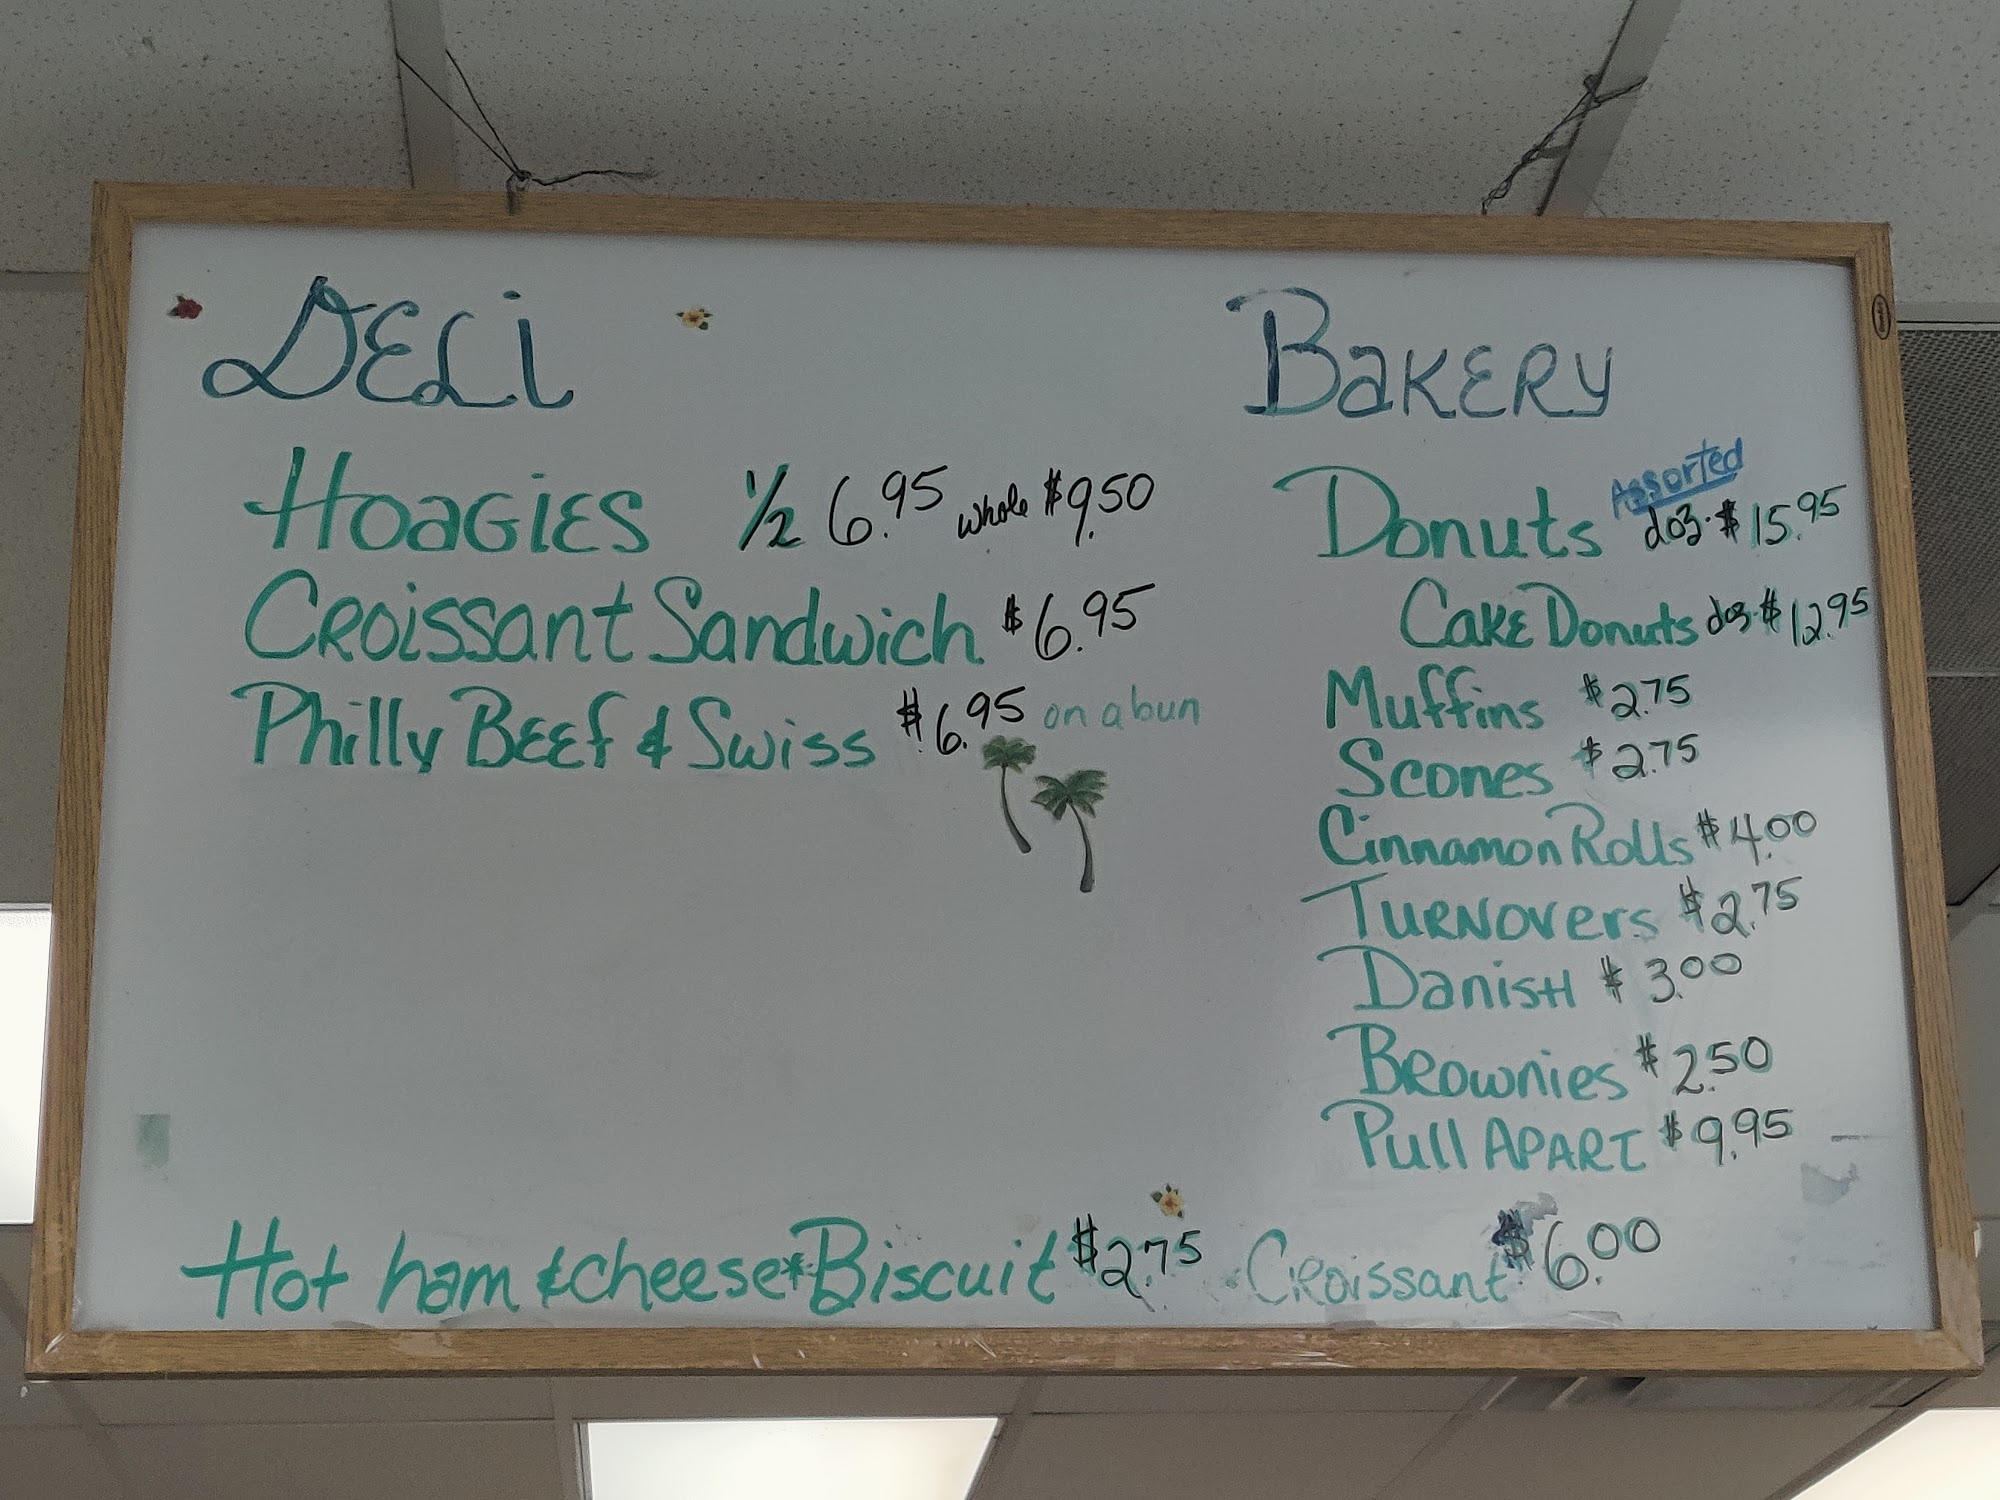 DELI
HOAGIES 1/2 6.95 whole $9.50
CROISSANT Sandwich $6.95
Philly BEEF & Swiss $6.95 on a bun
BAKERY
Donuts Assorted doz. $15.95
CAKE Donuts doz. $12.95
Muffins $2.75
Scones $2.75
Cinnamon Rolls $4.00
TURNOVers $2.75
DanisH $3.00
BRownies $2.50
Pull APART $9.95
Hot ham & cheese * Biscuit $2.75 CRoissant $6.00